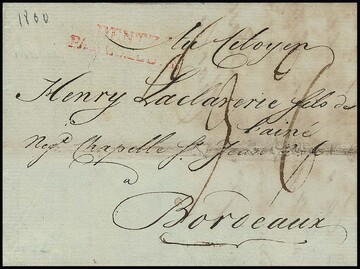 1800
Au Citoyen
Henry Laclaverie fils de
l'ainé
Neg.t Chapelle St. Jean
a
Bordeaux